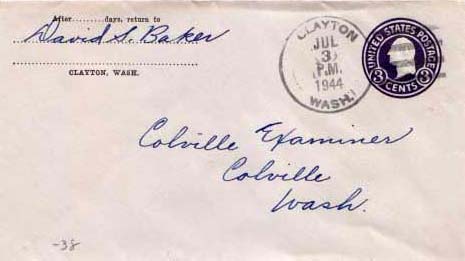 After........days, return to
David S. Baker
CLAYTON, WASH.
CLAYTON
JUL
3
P.M.
1944
WASH.
UNITED STATES POSTAGE
3 3
CENTS
Colville Examiner
Colville
Wash.
-38